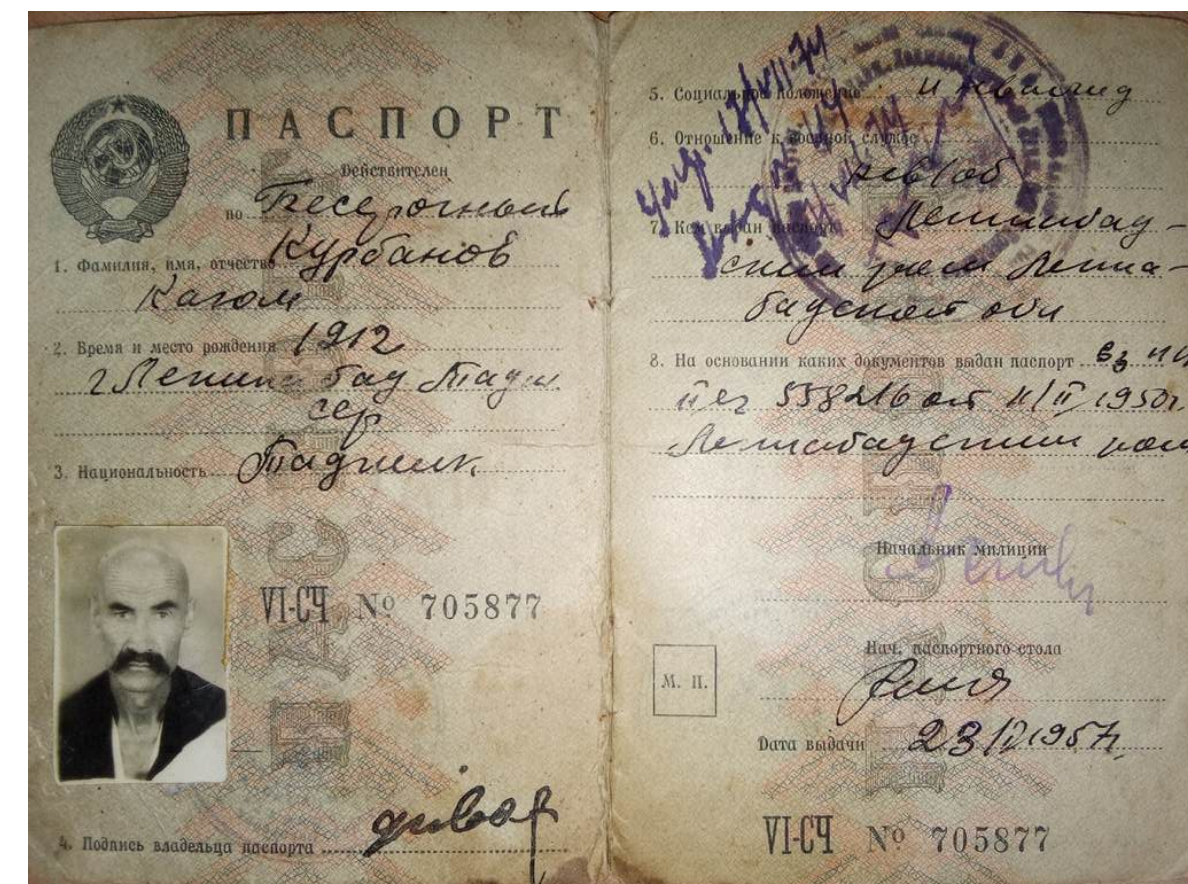 ПАСПОРТ
Действителен
по Бессрочный
1. Фамилия, имя, отчество Курбанов
2. Время и место рождения 1912
г Ленинабад Тадж
сср
3. Национальность Таджик
VI-СЧ № 705877
4. Подпись владельца паспорта
5. Социальное положение инвалид
6. Отношение к военной службе
нев/об
7. Кем выдан паспорт Ленинабад-
ским Ленина-
бадской обл
8. На основании каких документов выдан паспорт
558216 от 11/II 1950г.
Ленинабадским
Начальник милиции
Нач. паспортного стола
М. П.
Дата выдачи 1957г.
VI-СЧ № 705877